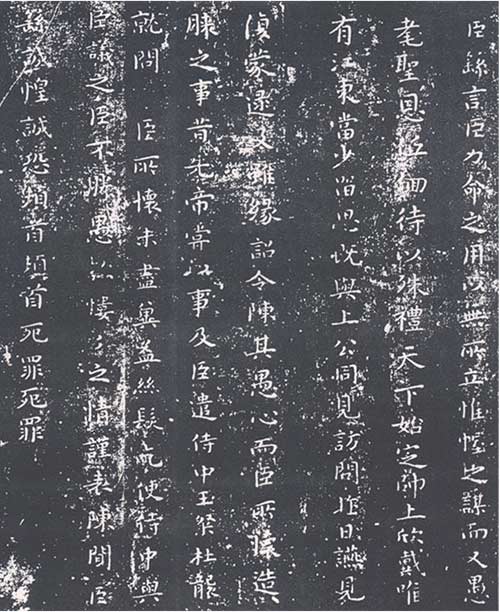 臣繇言臣力命之用以無所立惟幄之謀而又愚
耄聖恩低佪待以殊禮天下始定帥土欣戴唯
有江東當少留思既與上公同見訪問昨日讌見
蒙逮及雖緣詔令陳其愚心而臣所懷造
膝之事昔先帝嘗以事及臣遣侍中王粲杜襲
就問 臣所懷未盡奚益絲髮乞使侍中與
臣議之臣不勝愚款慺々之情謹表陳聞臣
繇誠惶誠恐頓首頓首死罪死罪